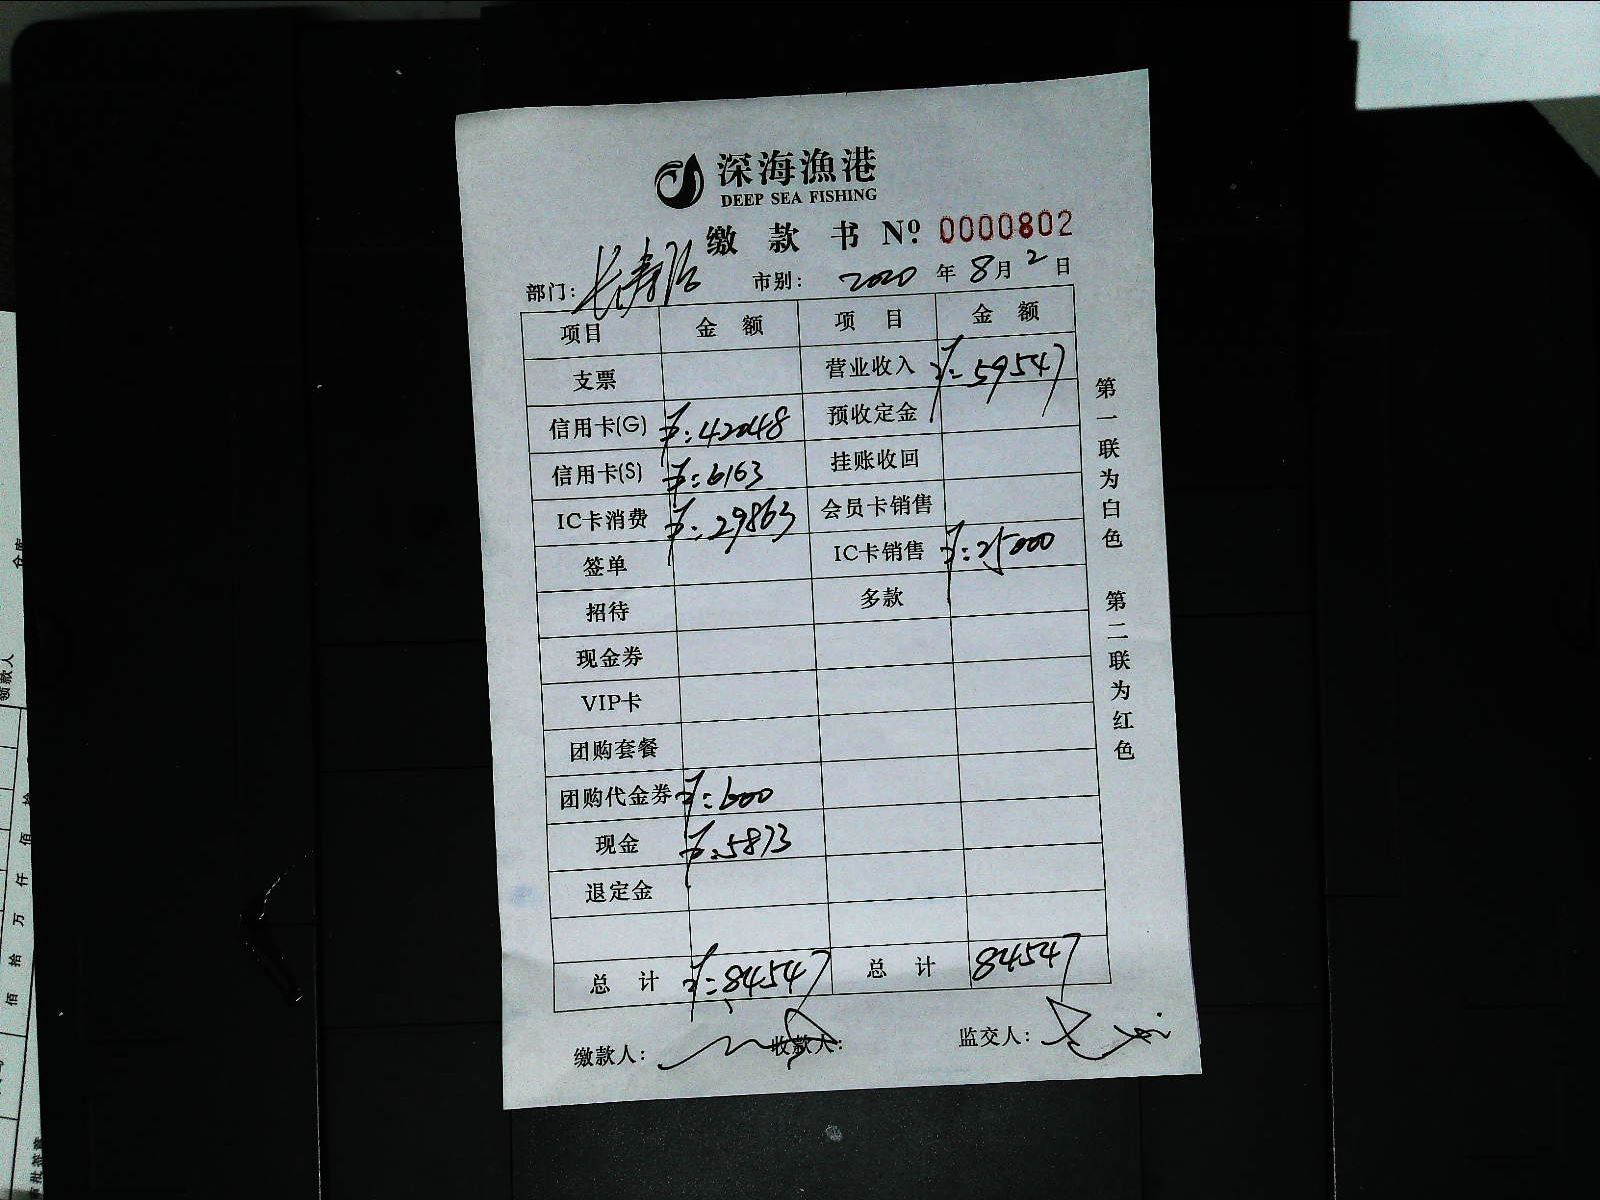 深海漁港
DEEP SEA FISHING
缴款书 Nº 0000802
部门: 长寿路 市别: 2020年8月2日
项目 金额 项目 金额
支票 营业收入 ¥:59547
信用卡(G) ¥:42048 预收定金
信用卡(S) ¥:6163 挂账收回
IC卡消费 ¥:29863 会员卡销售
签单 IC卡销售 ¥:25000
招待 多款
现金券
VIP卡
团购套餐
团购代金券 ¥:600
现金 ¥:5873
退定金
总计 ¥:84547 总计 84547
缴款人: 收款人: 监交人:
第一联为白色 第二联为红色
领款人
佰拾万仟佰